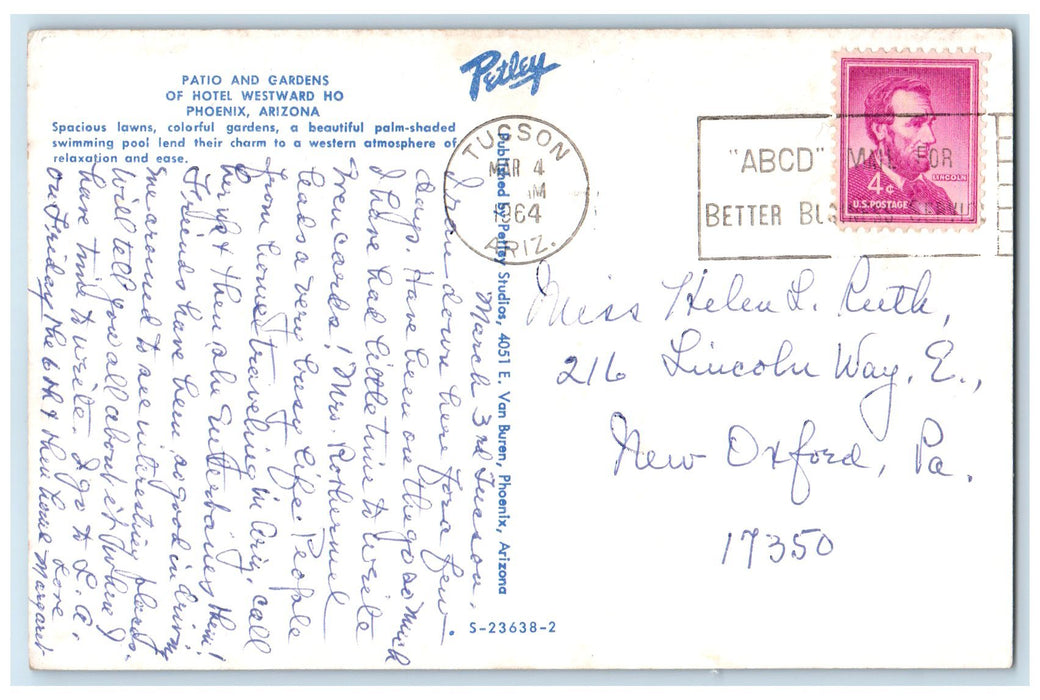 PATIO AND GARDENS
OF HOTEL WESTWARD HO
PHOENIX, ARIZONA
Spacious lawns, colorful gardens, a beautiful palm-shaded
swimming pool lend their charm to a western atmosphere of
relaxation and ease.
Petley
TUCSON
MAR 4
M
1964
ARIZ.
"ABCD" MAIL FOR
BETTER BUSINESS
LINCOLN
4¢
U.S. POSTAGE
Published by Petley Studios, 4051 E. Van Buren, Phoenix, Arizona
S-23638-2
March 3rd Tucson.
I ran down here for a few
days. Have been on the go so much
I have had little time to write
even cards! Mrs. Rothermel
leads a very busy life. People
from home traveling in Ariz. call
her up & then she entertains them!
Friends have been so good in driving
me around to see interesting places.
Will tell you all about it when I
have time to write. I go to L.A.
on Friday the 6th & then home Love
Margaret
Miss Helen L. Ruth,
216 Lincoln Way, E.,
New Oxford, Pa.
17350